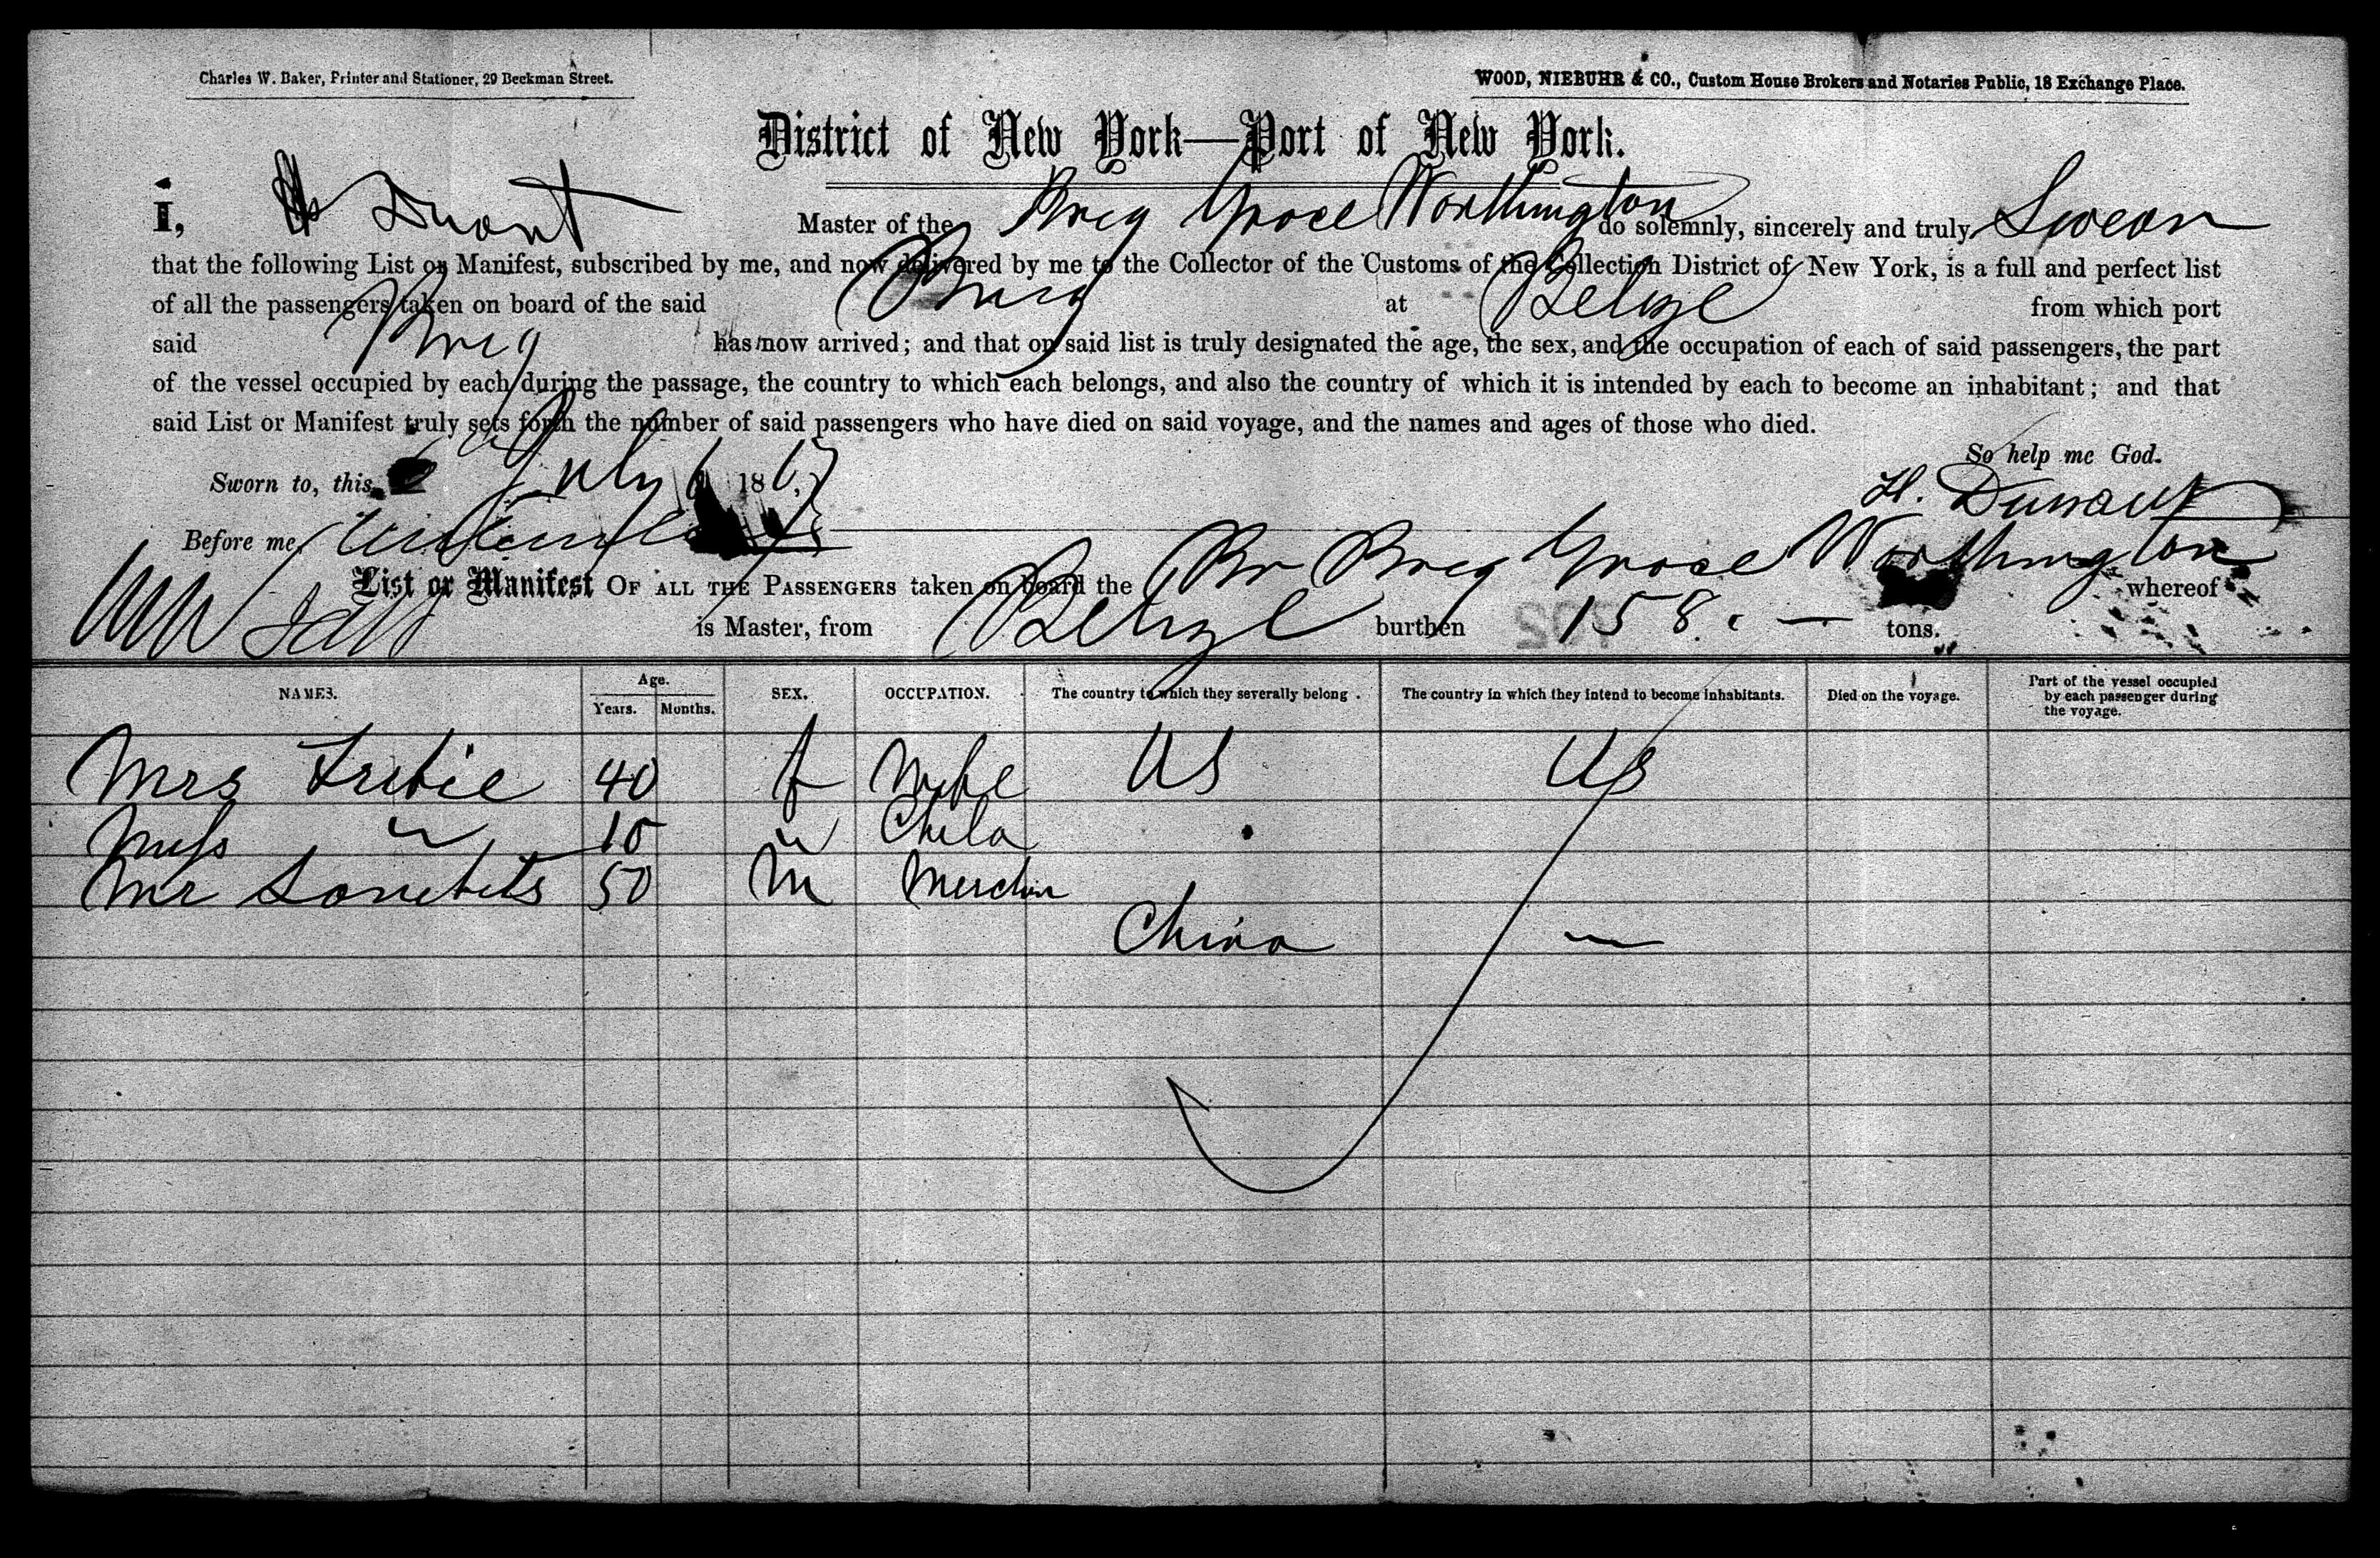 Charles W. Baker, Printer and Stationer, 29 Beekman Street.
WOOD, NIEBUHR & CO., Custom House Brokers and Notaries Public, 18 Exchange Place.
District of New York—Port of New York.
I, Master of the Brig Grace Worthington do solemnly, sincerely and truly Swear
that the following List or Manifest, subscribed by me, and now delivered by me to the Collector of the Customs of the Collection District of New York, is a full and perfect list
of all the passengers taken on board of the said Brig at Belize from which port
said Brig has now arrived; and that on said list is truly designated the age, the sex, and the occupation of each of said passengers, the part
of the vessel occupied by each during the passage, the country to which each belongs, and also the country of which it is intended by each to become an inhabitant; and that
said List or Manifest truly sets forth the number of said passengers who have died on said voyage, and the names and ages of those who died.
So help me God.
Sworn to, this July 6 1867
H.
Before me,
List or Manifest OF ALL THE PASSENGERS taken on board the Br Brig Grace Worthington whereof
is Master, from Belize burthen 158. tons.
NAMES. Age. Years. Months. SEX. OCCUPATION. The country to which they severally belong. The country in which they intend to become inhabitants. Died on the voyage. Part of the vessel occupied by each passenger during the voyage.
Mrs 40 f Wife US US
Miss 10 " Child
Mr 50 M Merchan
China —